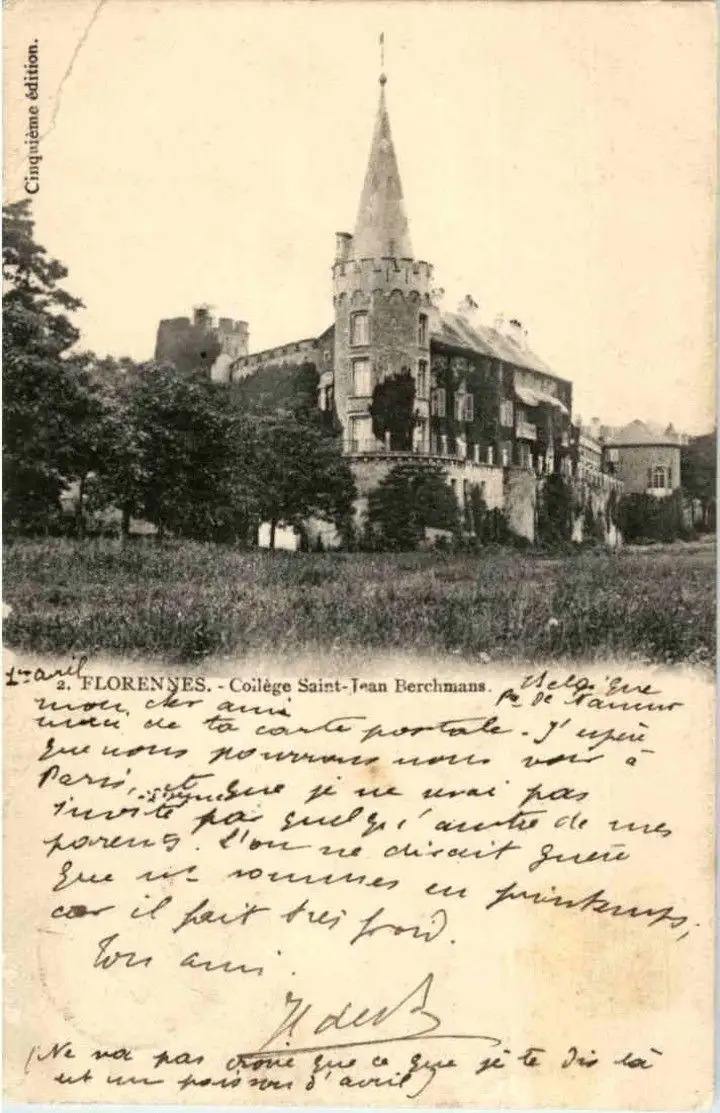 Cinquième édition.
1er avril
2. FLORENNES. - Collège Saint-Jean Berchmans.
Belgique
Pce De Namur
mon cher ami
merci de ta carte postale. J'espère
que nous pourrons nous voir à
Paris, et que je ne serai pas
invité par quelqu'autre de mes
parents. L'on ne dirait guère
que nous sommes en printemps,
car il fait très froid.
Ton ami.
H de
(Ne va pas croire que ce que je te dis là
est un poisson d'avril)